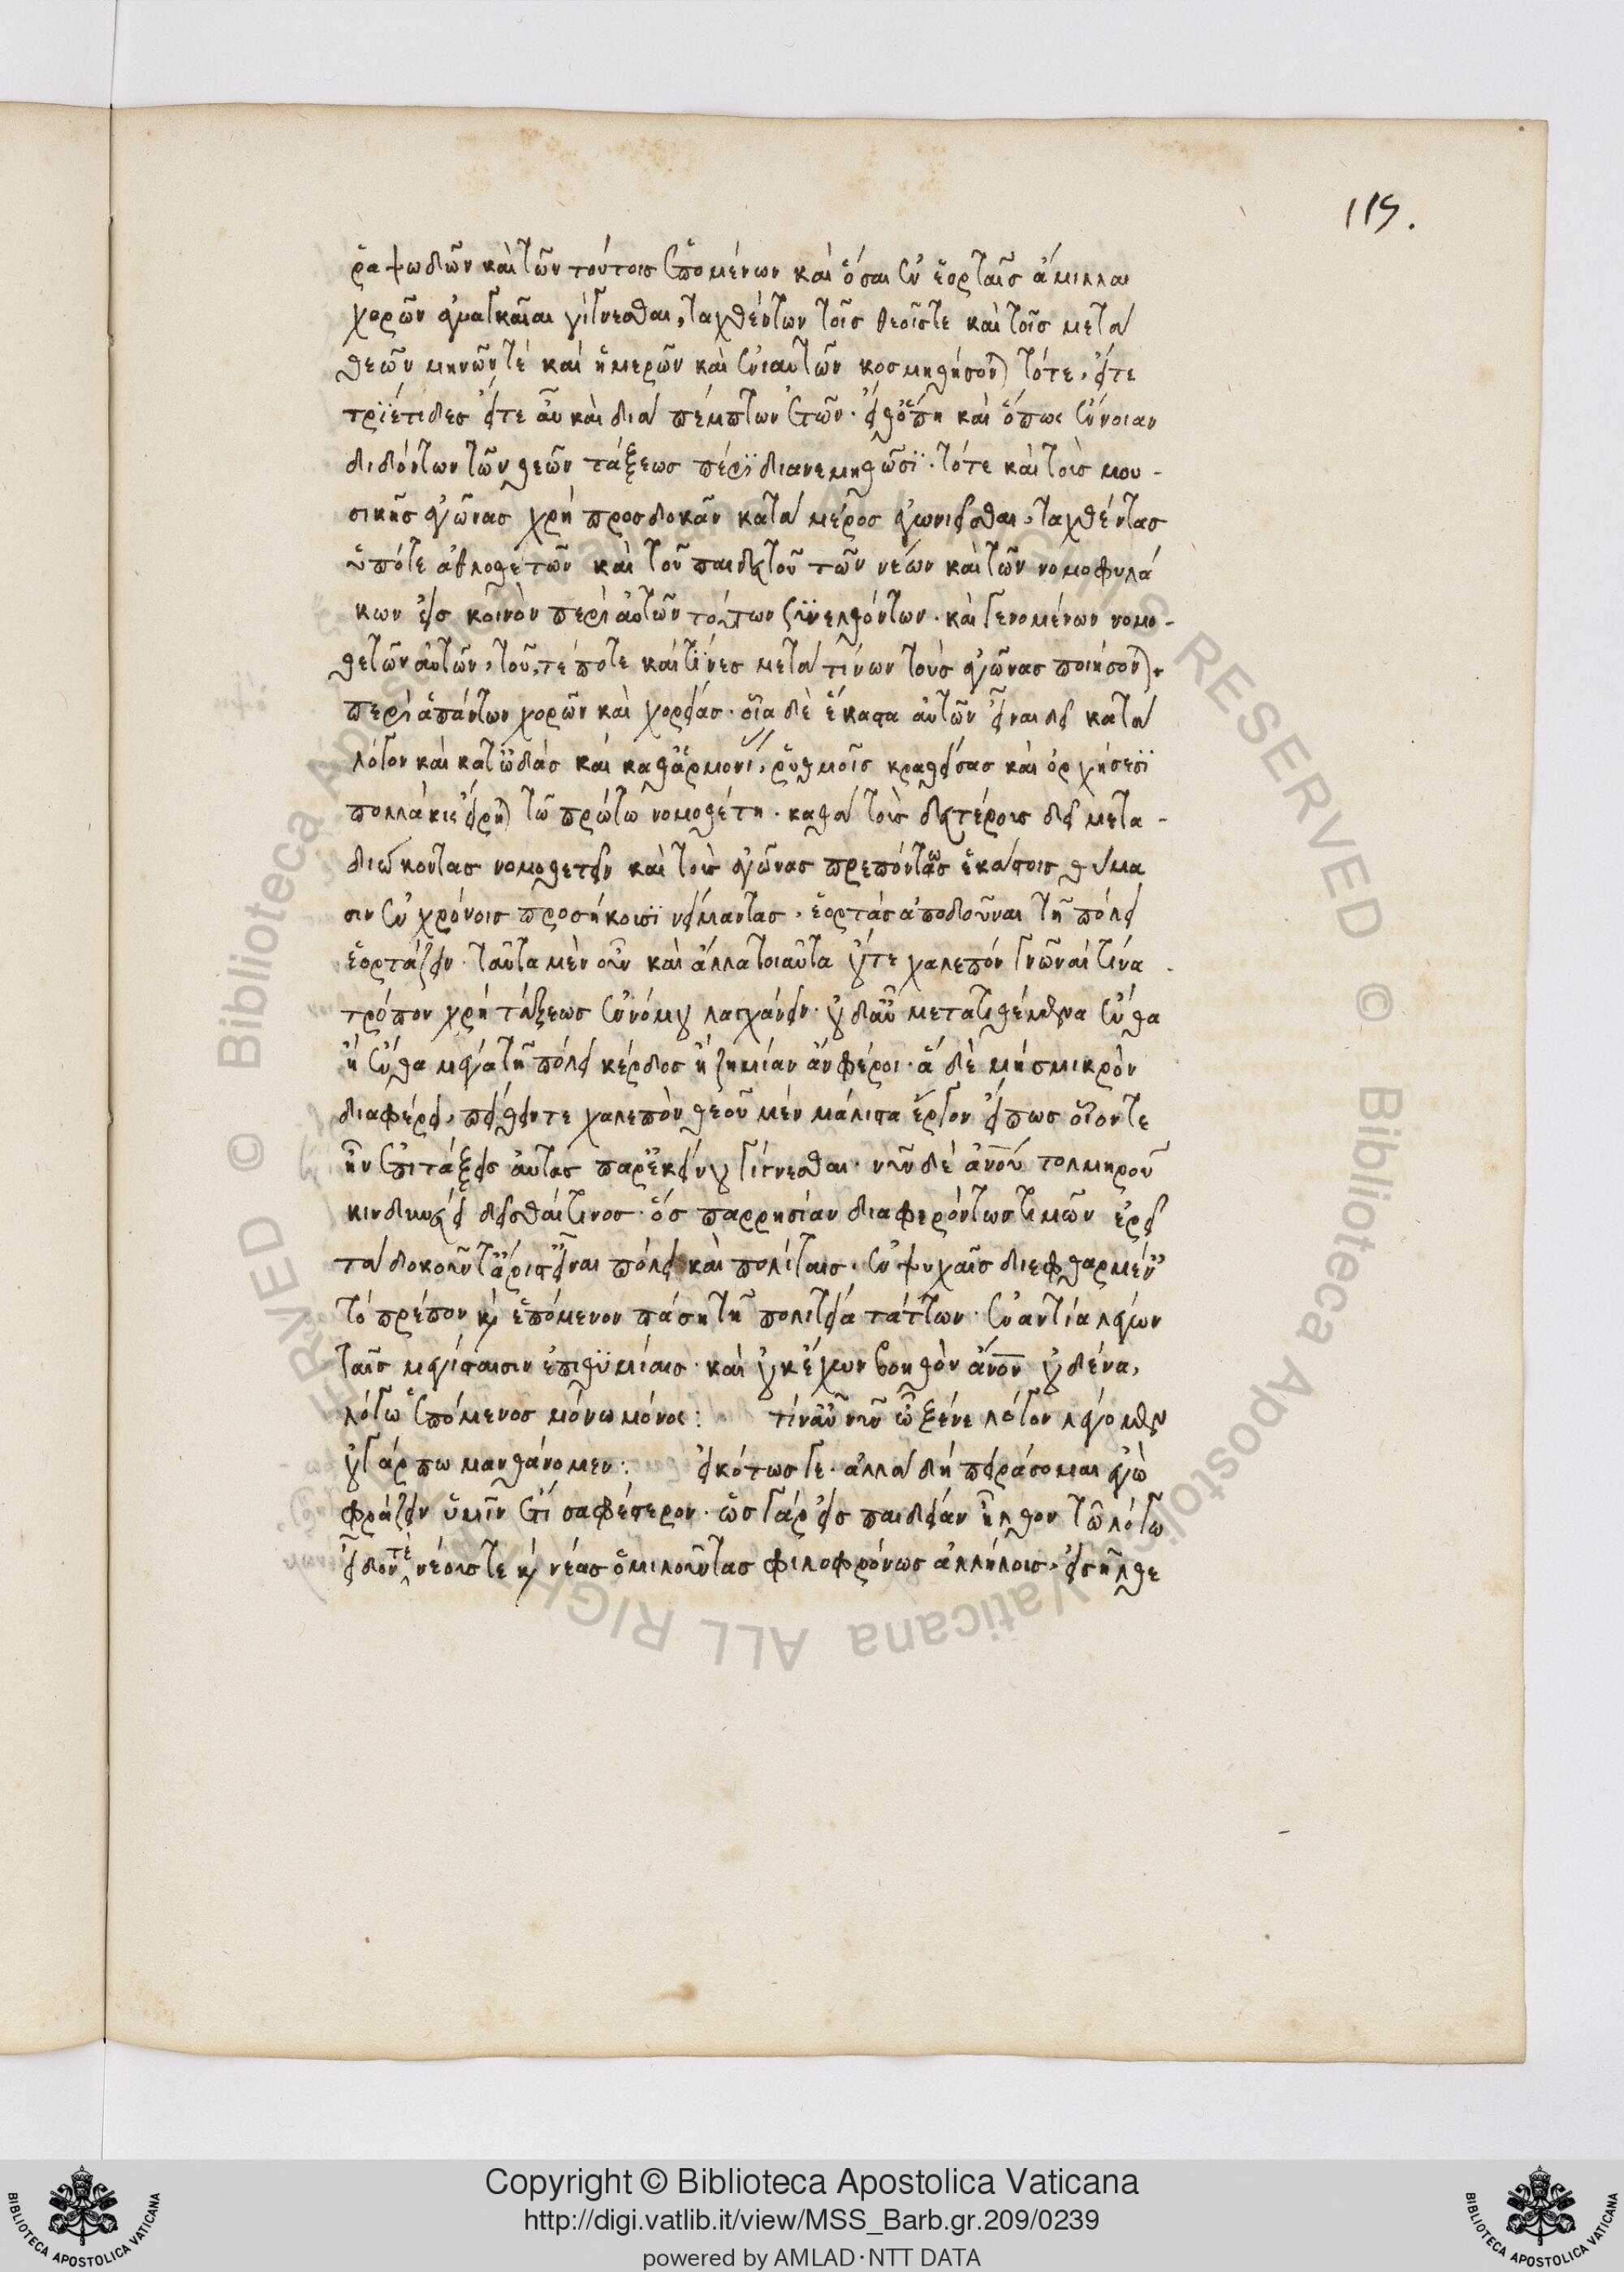 115.
ῥαψωδῶν καὶ τῶν τούτοις ἑπομένων καὶ ὅσαι ἐν ἑορταῖς ἅμιλλαι
χορῶν ἀναγκαῖαι γίγνεσθαι, ταχθέντων τοῖς θεοῖς τε καὶ τοῖς μετὰ
θεῶν μηνῶν τέ καὶ ἡμερῶν καὶ ἐνιαυτῶν κοσμηθήσονται τότε, εἴτε
τριέτιδες εἴτε αὖ καὶ διὰ πέμπτων ἐτῶν. εἴθ' ὅπη καὶ ὅπως ἔννοιαν
διδόντων τῶν θεῶν τάξεως πέρι διανεμηθῶσι. τότε καὶ τοὺς μου-
σικῆς ἀγῶνας χρὴ προσδοκᾶν κατὰ μέρος ἀγωνιεῖσθαι, ταχθέντας
ὑπότε ἀθλοθετῶν καὶ τοῦ παιδευτοῦ τῶν νέων καὶ τῶν νομοφυλά
κων εἰς κοινὸν περὶ αὐτῶν τούτων συνελθόντων. καὶ γενομένων νομο-
θετῶν αὐτῶν, τοῦ τέ ποτε καὶ τίνες μετὰ τίνων τοὺς ἀγῶνας ποιήσονται.
περὶ ἁπάντων χορῶν καὶ χορείας. οἷα δὲ ἕκαστα αὐτῶν εἶναι δεῖ κατὰ
λόγον καὶ κατ' ὠδὰς καὶ καθ' ἁρμονίας, ῥυθμοῖς κραθείσας καὶ ὀρχήσεσι
πολλάκις εἴρηται τῶ πρώτω νομοθέτη. καθ' ἃ τοὺς δευτέρους δεῖ μετα-
διώκοντας νομοθετεῖν καὶ τοὺς ἀγῶνας πρεπόντως ἑκάστοις θύμα
σιν ἐν χρόνοις προσήκουσι νείμαντας, ἑορτὰς ἀποδοῦναι τῆ πόλει
ἑορτάζειν. ταῦτα μὲν οὖν καὶ ἄλλα τοιαῦτα οὔτε χαλεπόν γνῶναι τίνα
τρόπον χρὴ τάξεως ἐννόμου λαγχάνειν. οὐδ' αὖ μετατιθέμενα ἔνθα
ἢ ἔνθα μέγα τῆ πόλει κέρδος ἢ ζημίαν ἂν φέροι. ἃ δὲ μὴ σμικρὸν
διαφέρει, πείθειν τε χαλεπὸν θεοῦ μὲν μάλιστα ἔργον εἴ πως οἷόν τε
ἦν ἐπιτάξεις αὐτὰς παρ' ἐκείνου γίγνεσθαι. νῦν δὲ ἀνου τολμηροῦ
κινδυνεύει δεῖσθαί τινος. ὃς παρρησίαν διαφερόντως τιμῶν ἐρεῖ
τὰ δοκοῦντ' ἄριστ' εἶναι πόλει καὶ πολίταις. ἐν ψυχαῖς διεφθαρμέναις
τὸ πρέπον καὶ ἑπόμενον πάση τῆ πολιτεία τάττων. ἐναντία λέγων
ταῖς μεγίσταισιν ἐπιθυμίαις. καὶ οὐκ ἔχων βοηθὸν ἄνον οὐδένα,
λόγω ἑπόμενος μόνω μόνος: τίν' αὖ νῦν ὦ ξένε λόγον λέγομεν
οὐ γάρ πω μανθάνομεν: εἰκότως γε. ἀλλὰ δὴ πειράσομαι ἐγὼ
φράζειν ὑμῖν ἔτι σαφέστερον. ὡς γὰρ εἰς παιδείαν ἦλθον τῶ λόγω
εἶδον τὲ νέους τε καὶ νέας ὁμιλοῦντας φιλοφρόνως ἀλλήλοις, εἰσῆλθε
Copyright © Biblioteca Apostolica Vaticana
http://digi.vatlib.it/view/MSS_Barb.gr.209/0239
powered by AMLAD·NTT DATA